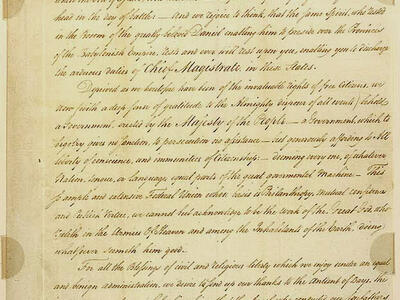 head in the day of battle — and we rejoice to think, that the same Spirit, who rested
in the Bosom of the greatly beloved Daniel enabling him to preside over the Provinces
of the Babylonish Empire, rests and ever will rest upon you, enabling you to discharge
the arduous duties of Chief Magistrate in these States.
Deprived as we heretofore have been of the invaluable rights of free Citizens, we
now (with a deep sense of gratitude to the Almighty disposer of all events) behold
a Government, erected by the Majesty of the People — a Government, which to
bigotry gives no sanction, to persecution no assistance — but generously affording to All
liberty of conscience, and immunities of Citizenship: — deeming every one, of whatever
Nation, tongue, or language equal parts of the great governmental Machine — This
so ample and extensive Federal Union whose basis is Philanthropy, mutual confidence
and Publick Virtue, we cannot but acknowledge to be the work of the Great God, who
ruleth in the Armies Of Heaven and among the Inhabitants of the Earth, doing
whatsoever seemeth him good.
For all the Blessings of civil and religious liberty which we enjoy under an equal
and benign administration, we desire to send up our thanks to the Antient of Days, the